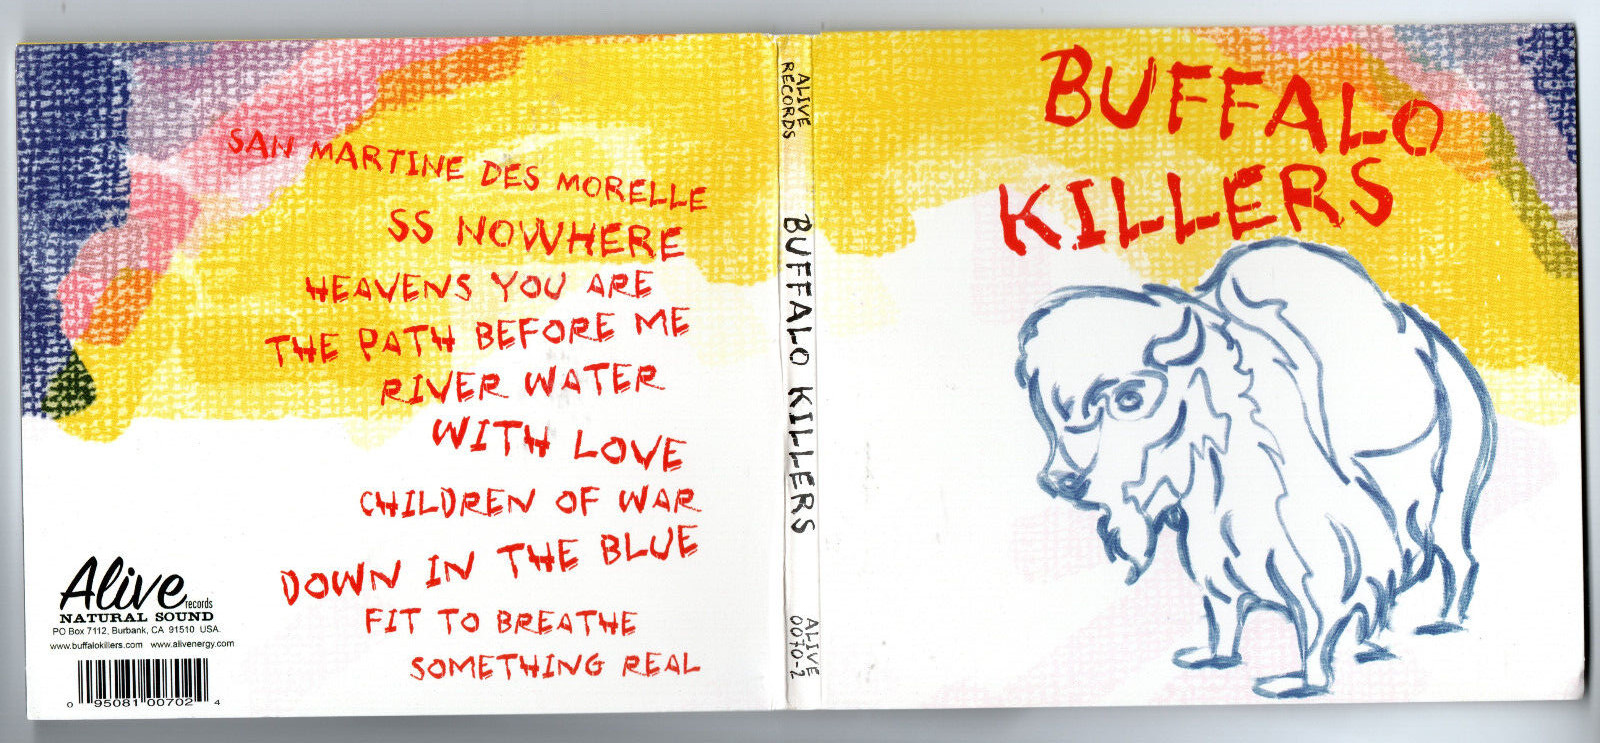 SAN MARTINE DES MORELLE
SS NOWHERE
HEAVENS YOU ARE
THE PATH BEFORE ME
RIVER WATER
WITH LOVE
CHILDREN OF WAR
DOWN IN THE BLUE
FIT TO BREATHE
SOMETHING REAL
Alive records
NATURAL SOUND
PO Box 7112, Burbank, CA 91510 USA.
www.buffalokillers.com www.alivenergy.com
0 95081 00702 4
ALIVE
RECORDS
BUFFALO KILLERS
ALIVE
0070-2
BUFFALO
KILLERS